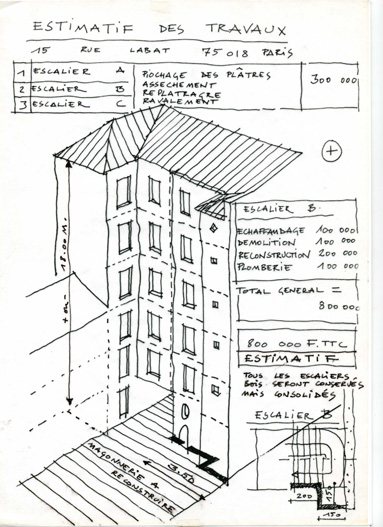 ESTIMATIF DES TRAVAUX
15 RUE LABAT 75018 PARIS
1 ESCALIER A
2 ESCALIER B
3 ESCALIER C
PIOCHAGE DES PLÂTRES
ASSECHEMENT
REPLATRAGRE
RAVALEMENT
300 000
+
ESCALIER B
ECHAFFAMDAGE 100 000
DEMOLITION 100 000
RECONSTRUCTION 200 000
PLOMBERIE 100 000
TOTAL GENERAL =
800 000
800 000 F.TTC
ESTIMATIF
TOUS LES ESCALIERS
BOIS SERONT CONSERVÉS
MAIS CONSOLIDÉS
ESCALIER B
18.00 M.
3.50
MAÇONNERIE A
RECONSTRUIRE
200
150
150